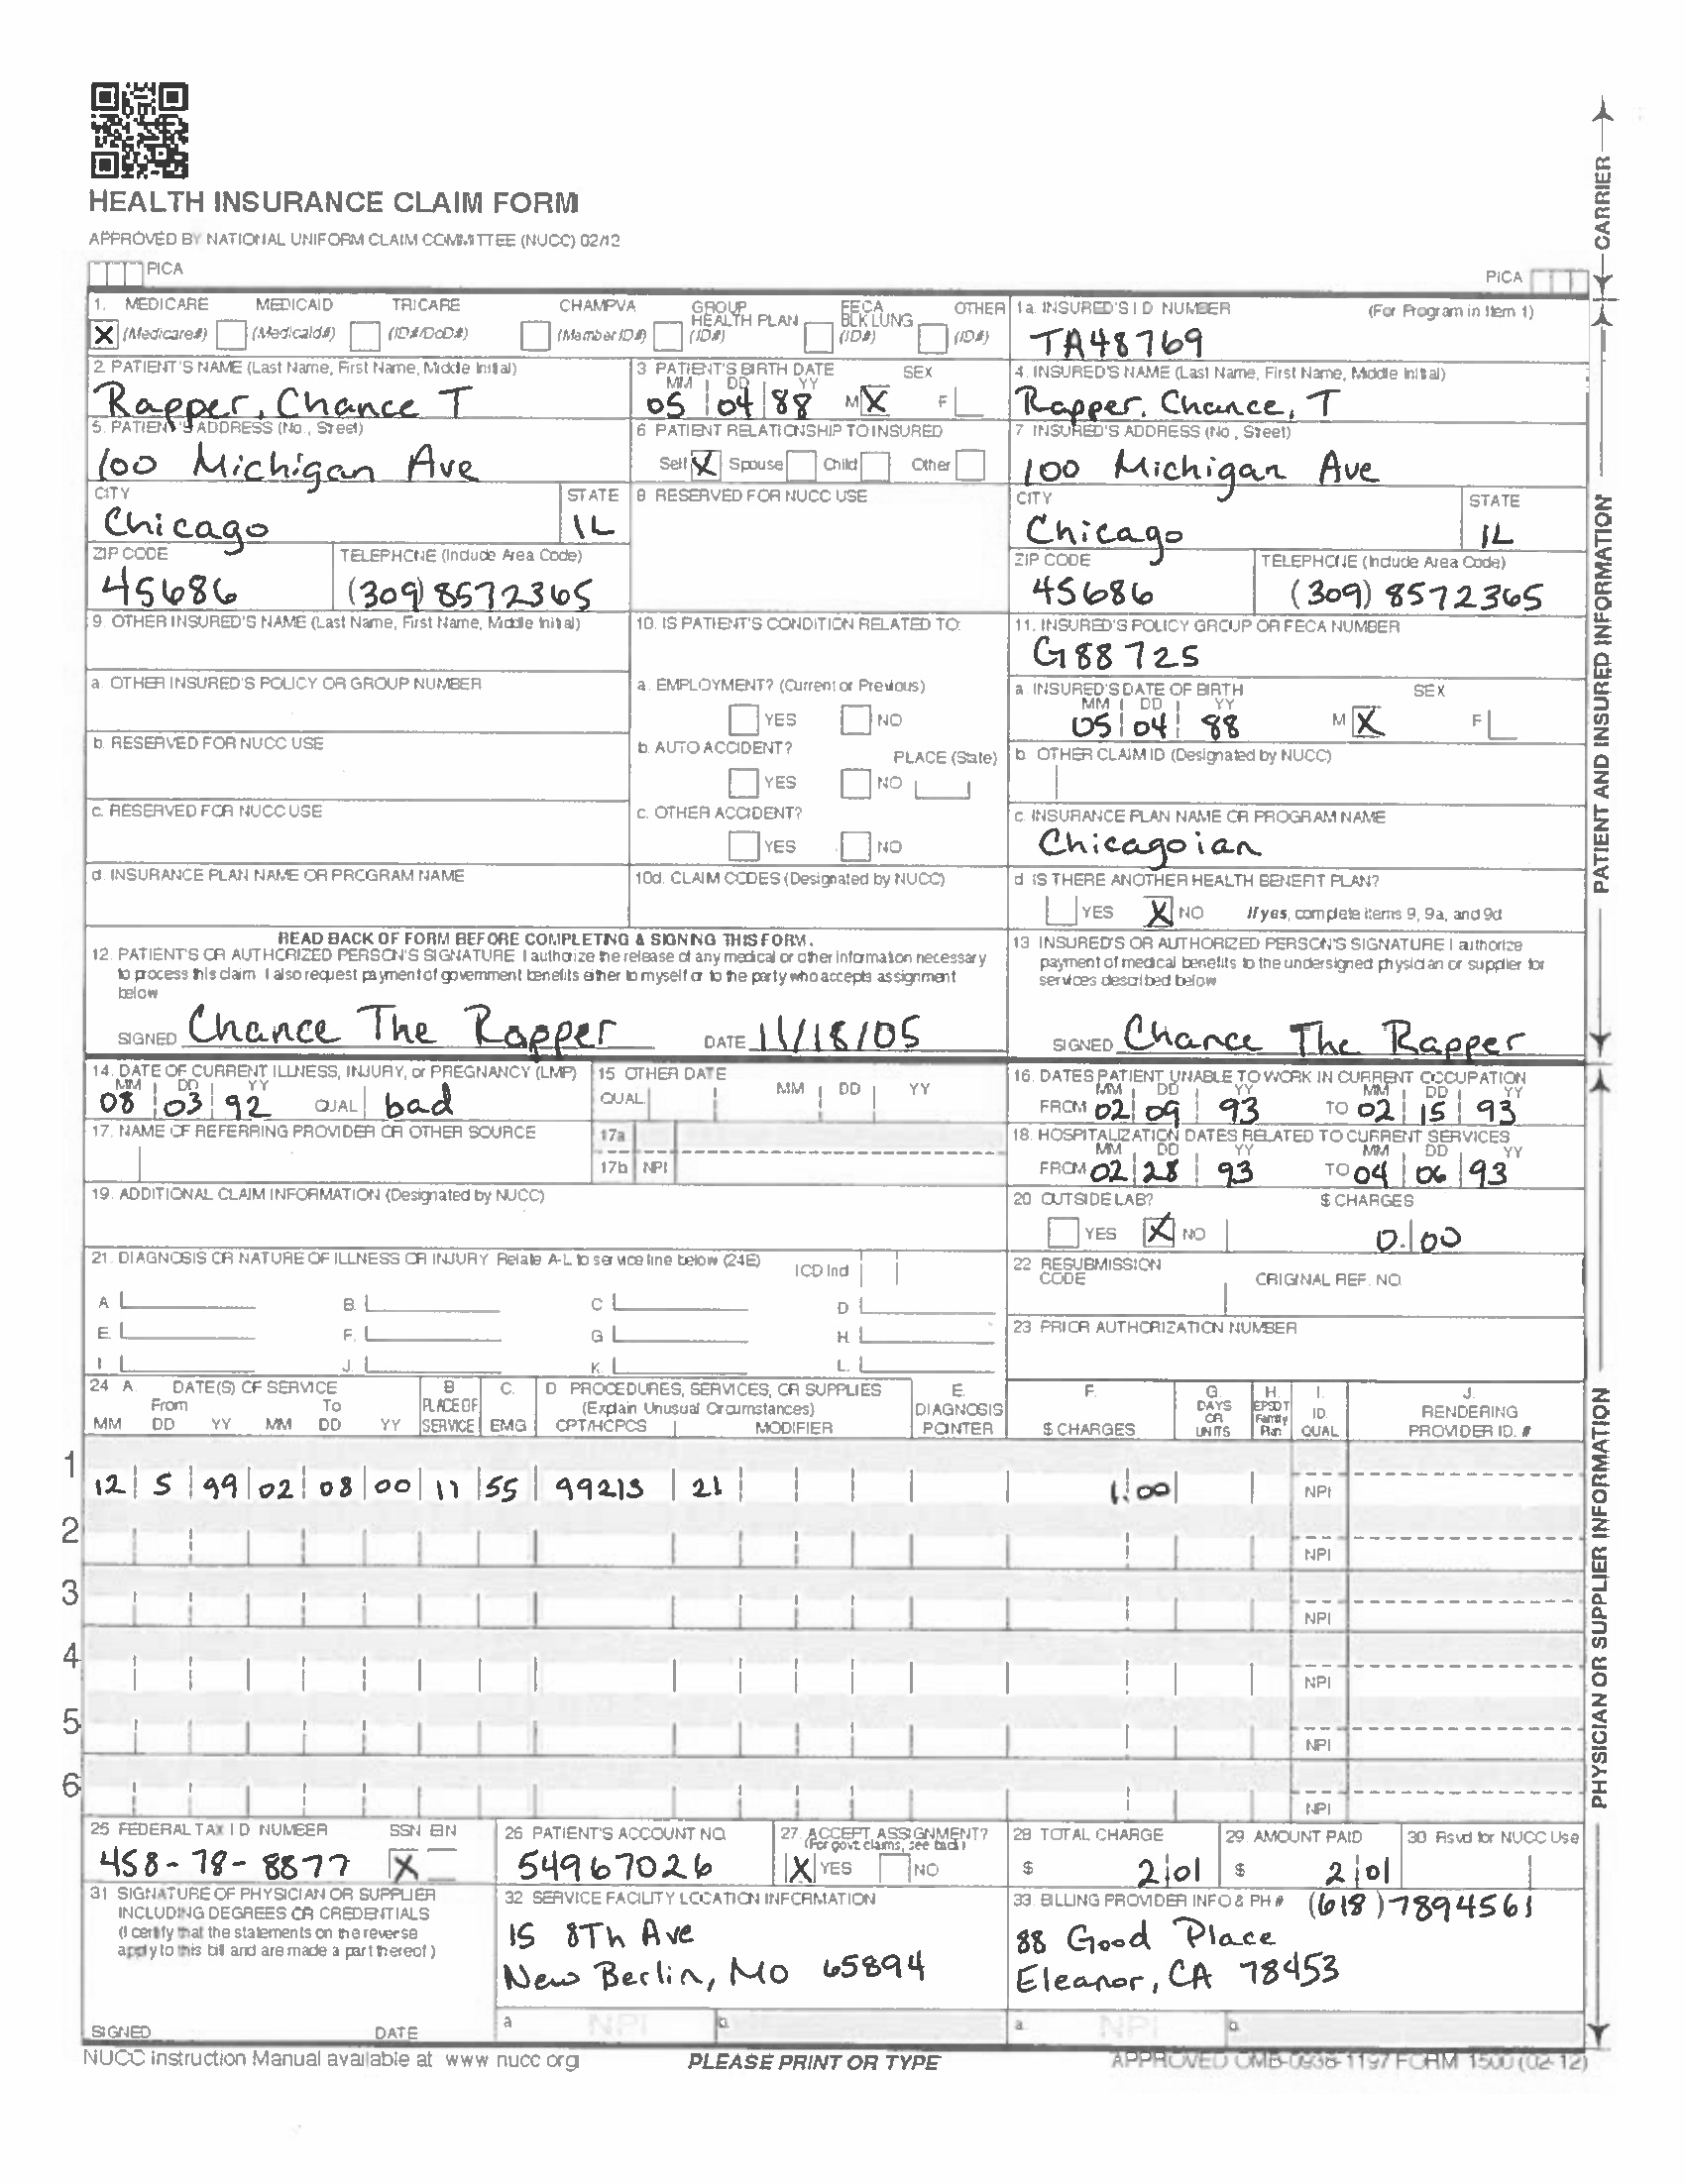 HEALTH INSURANCE CLAIM FORM
APPROVED BY NATIONAL UNIFORM CLAIM COMMITTEE (NUCC) 02/12
PICA
PICA
CARRIER
1. MEDICARE MEDICAID TRICARE CHAMPVA GROUP HEALTH PLAN FECA BLK LUNG OTHER
X (Medicare#) (Medicaid#) (ID#/DoD#) (Member ID#) (ID#) (ID#) (ID#)
1a. INSURED'S I D NUMBER (For Program in Item 1)
TA48769
2. PATIENT'S NAME (Last Name, First Name, Middle Initial)
Rapper, Chance T
3 PATIENT'S BIRTH DATE SEX
MM DD YY
05 04 88 M X F
4. INSURED'S NAME (Last Name, First Name, Middle Initial)
Rapper, Chance, T
5. PATIENT'S ADDRESS (No., Street)
100 Michigan Ave
6 PATIENT RELATIONSHIP TO INSURED
Self X Spouse Child Other
7 INSURED'S ADDRESS (No., Street)
100 Michigan Ave
CITY STATE
Chicago IL
8 RESERVED FOR NUCC USE
CITY STATE
Chicago IL
ZIP CODE TELEPHONE (Include Area Code)
45686 (309) 8572365
ZIP CODE TELEPHONE (Include Area Code)
45686 (309) 8572365
9. OTHER INSURED'S NAME (Last Name, First Name, Middle Initial)
10. IS PATIENT'S CONDITION RELATED TO:
11. INSURED'S POLICY GROUP OR FECA NUMBER
G88725
a. OTHER INSURED'S POLICY OR GROUP NUMBER
a. EMPLOYMENT? (Current or Previous)
YES NO
a. INSURED'S DATE OF BIRTH SEX
MM DD YY
05 04 88 M X F
b. RESERVED FOR NUCC USE
b. AUTO ACCIDENT? PLACE (State)
YES NO
b. OTHER CLAIM ID (Designated by NUCC)
c. RESERVED FOR NUCC USE
c. OTHER ACCIDENT?
YES NO
c. INSURANCE PLAN NAME OR PROGRAM NAME
Chicagoian
d. INSURANCE PLAN NAME OR PROGRAM NAME
10d. CLAIM CODES (Designated by NUCC)
d IS THERE ANOTHER HEALTH BENEFIT PLAN?
YES X NO If yes, complete items 9, 9a, and 9d
READ BACK OF FORM BEFORE COMPLETING & SIGNING THIS FORM.
12. PATIENT'S OR AUTHORIZED PERSON'S SIGNATURE I authorize the release of any medical or other information necessary
to process this claim I also request payment of government benefits either to myself or to the party who accepts assignment
below
SIGNED Chance The Rapper DATE 11/18/05
13 INSURED'S OR AUTHORIZED PERSON'S SIGNATURE I authorize
payment of medical benefits to the undersigned physician or supplier for
services described below
SIGNED Chance The Rapper
PATIENT AND INSURED INFORMATION
14. DATE OF CURRENT ILLNESS, INJURY, or PREGNANCY (LMP)
MM DD YY
08 03 92 QUAL bad
15 OTHER DATE
QUAL MM DD YY
16. DATES PATIENT UNABLE TO WORK IN CURRENT OCCUPATION
MM DD YY MM DD YY
FROM 02 09 93 TO 02 15 93
17. NAME OF REFERRING PROVIDER OR OTHER SOURCE
17a
17b NPI
18. HOSPITALIZATION DATES RELATED TO CURRENT SERVICES
MM DD YY MM DD YY
FROM 02 28 93 TO 04 06 93
19. ADDITIONAL CLAIM INFORMATION (Designated by NUCC)
20 OUTSIDE LAB? $ CHARGES
YES X NO 0.00
21. DIAGNOSIS OR NATURE OF ILLNESS OR INJURY Relate A-L to service line below (24E) ICD Ind
A B. C D
E. F. G H.
I. J. K. L.
22 RESUBMISSION CODE ORIGINAL REF. NO.
23 PRIOR AUTHORIZATION NUMBER
24 A. DATE(S) OF SERVICE B C. D PROCEDURES, SERVICES, OR SUPPLIES E. F. G. H. I. J.
From To PLACE OF (Explain Unusual Circumstances) DIAGNOSIS DAYS OR EPSDT Family ID. RENDERING
MM DD YY MM DD YY SERVICE EMG CPT/HCPCS MODIFIER POINTER $ CHARGES UNITS Plan QUAL PROVIDER ID. #
1
12 5 99 02 08 00 11 55 99213 21 1.00 NPI
2
NPI
3
NPI
4
NPI
5
NPI
6
NPI
25 FEDERAL TAX I D NUMBER SSN EIN
458-78-8877 X
26 PATIENT'S ACCOUNT NO.
54967026
27. ACCEPT ASSIGNMENT?
(For govt claims, see back)
X YES NO
28 TOTAL CHARGE
$ 2 01
29. AMOUNT PAID
$ 2 01
30 Rsvd for NUCC Use
31 SIGNATURE OF PHYSICIAN OR SUPPLIER
INCLUDING DEGREES OR CREDENTIALS
(I certify that the statements on the reverse
apply to this bill and are made a part thereof)
SIGNED DATE
32 SERVICE FACILITY LOCATION INFORMATION
15 8Th Ave
New Berlin, MO 65894
a NPI b.
33. BILLING PROVIDER INFO & PH # (618)7894561
88 Good Place
Eleanor, CA 78453
a. NPI b.
PHYSICIAN OR SUPPLIER INFORMATION
NUCC Instruction Manual available at www nucc org
PLEASE PRINT OR TYPE
APPROVED OMB-0938-1197 FORM 1500 (02-12)